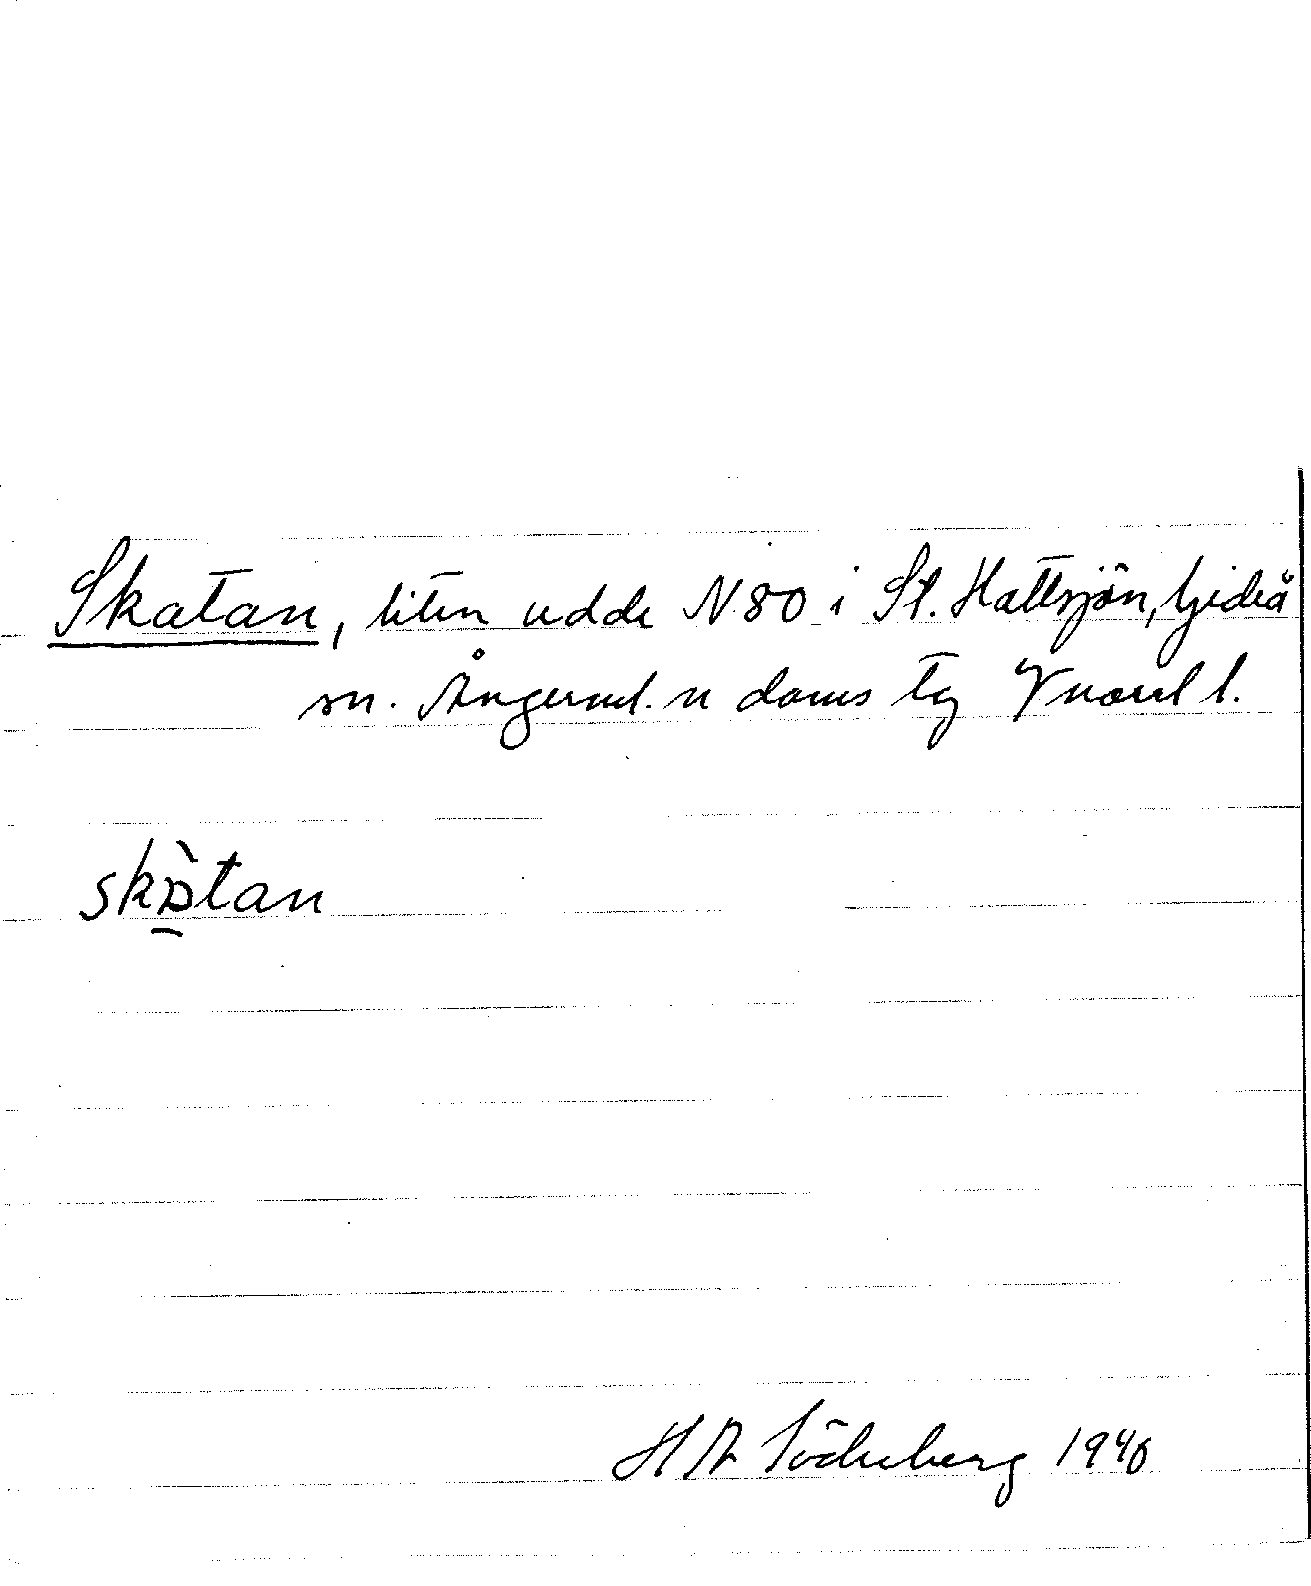 Skatan, liten udde NSO i St. Hattsjön, Gideå
sn. Ångerml. n doms tg Vnorrl l.
skɒ̠̀tan
H A Söderberg 1946